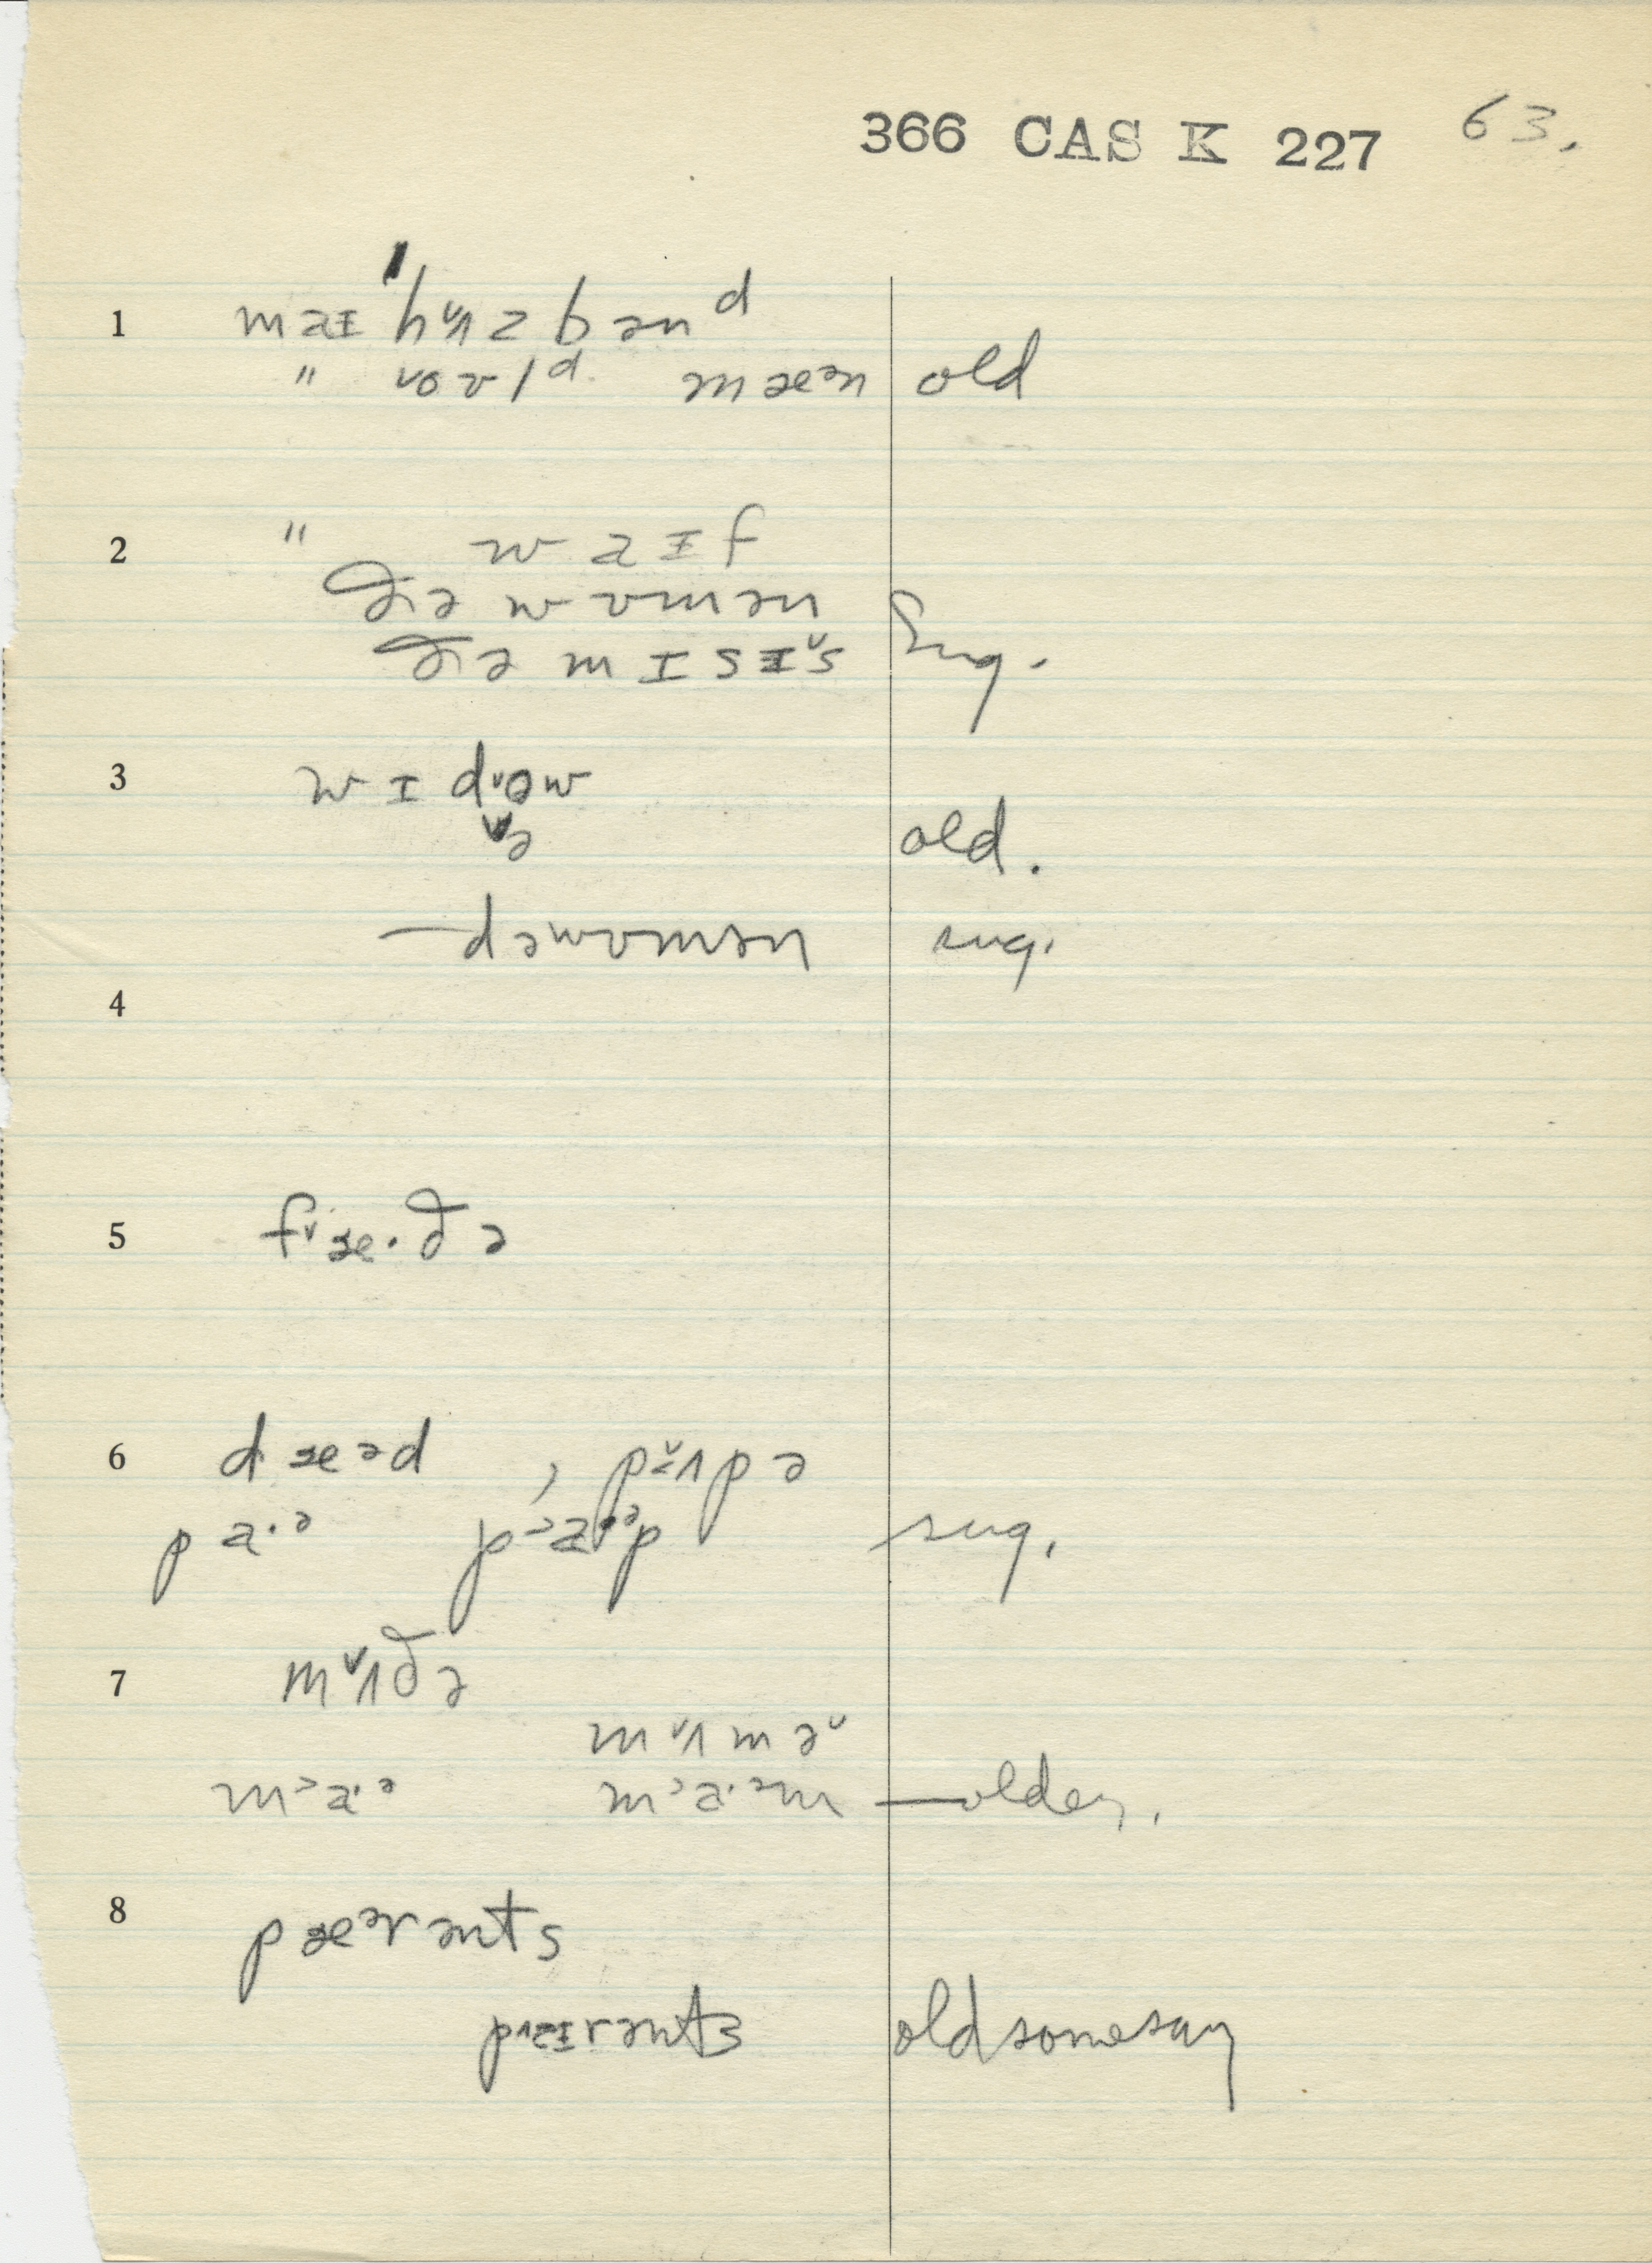 366 CAS K 227 63.
1 maɪ ˈhʌ̌zbənᵈ
" ˅oʊlᵈ mæən old
2 " waɪf
ðə wʊmən
ðə mɪsɪ˅s sug.
3 wɪd˅əw
˅ə old.
—dəwʊmən sug.
4
5 f˅æ·ðə
6 dæəd , pʌ̌pə
pa·ᵊ p˃a·ᵊp sug.
7 mʌ̌ðə
mʌ̌mə˅
m˃a·ᵊ m˃a·ᵊm — older.
8 pæᵊrənts
old some say